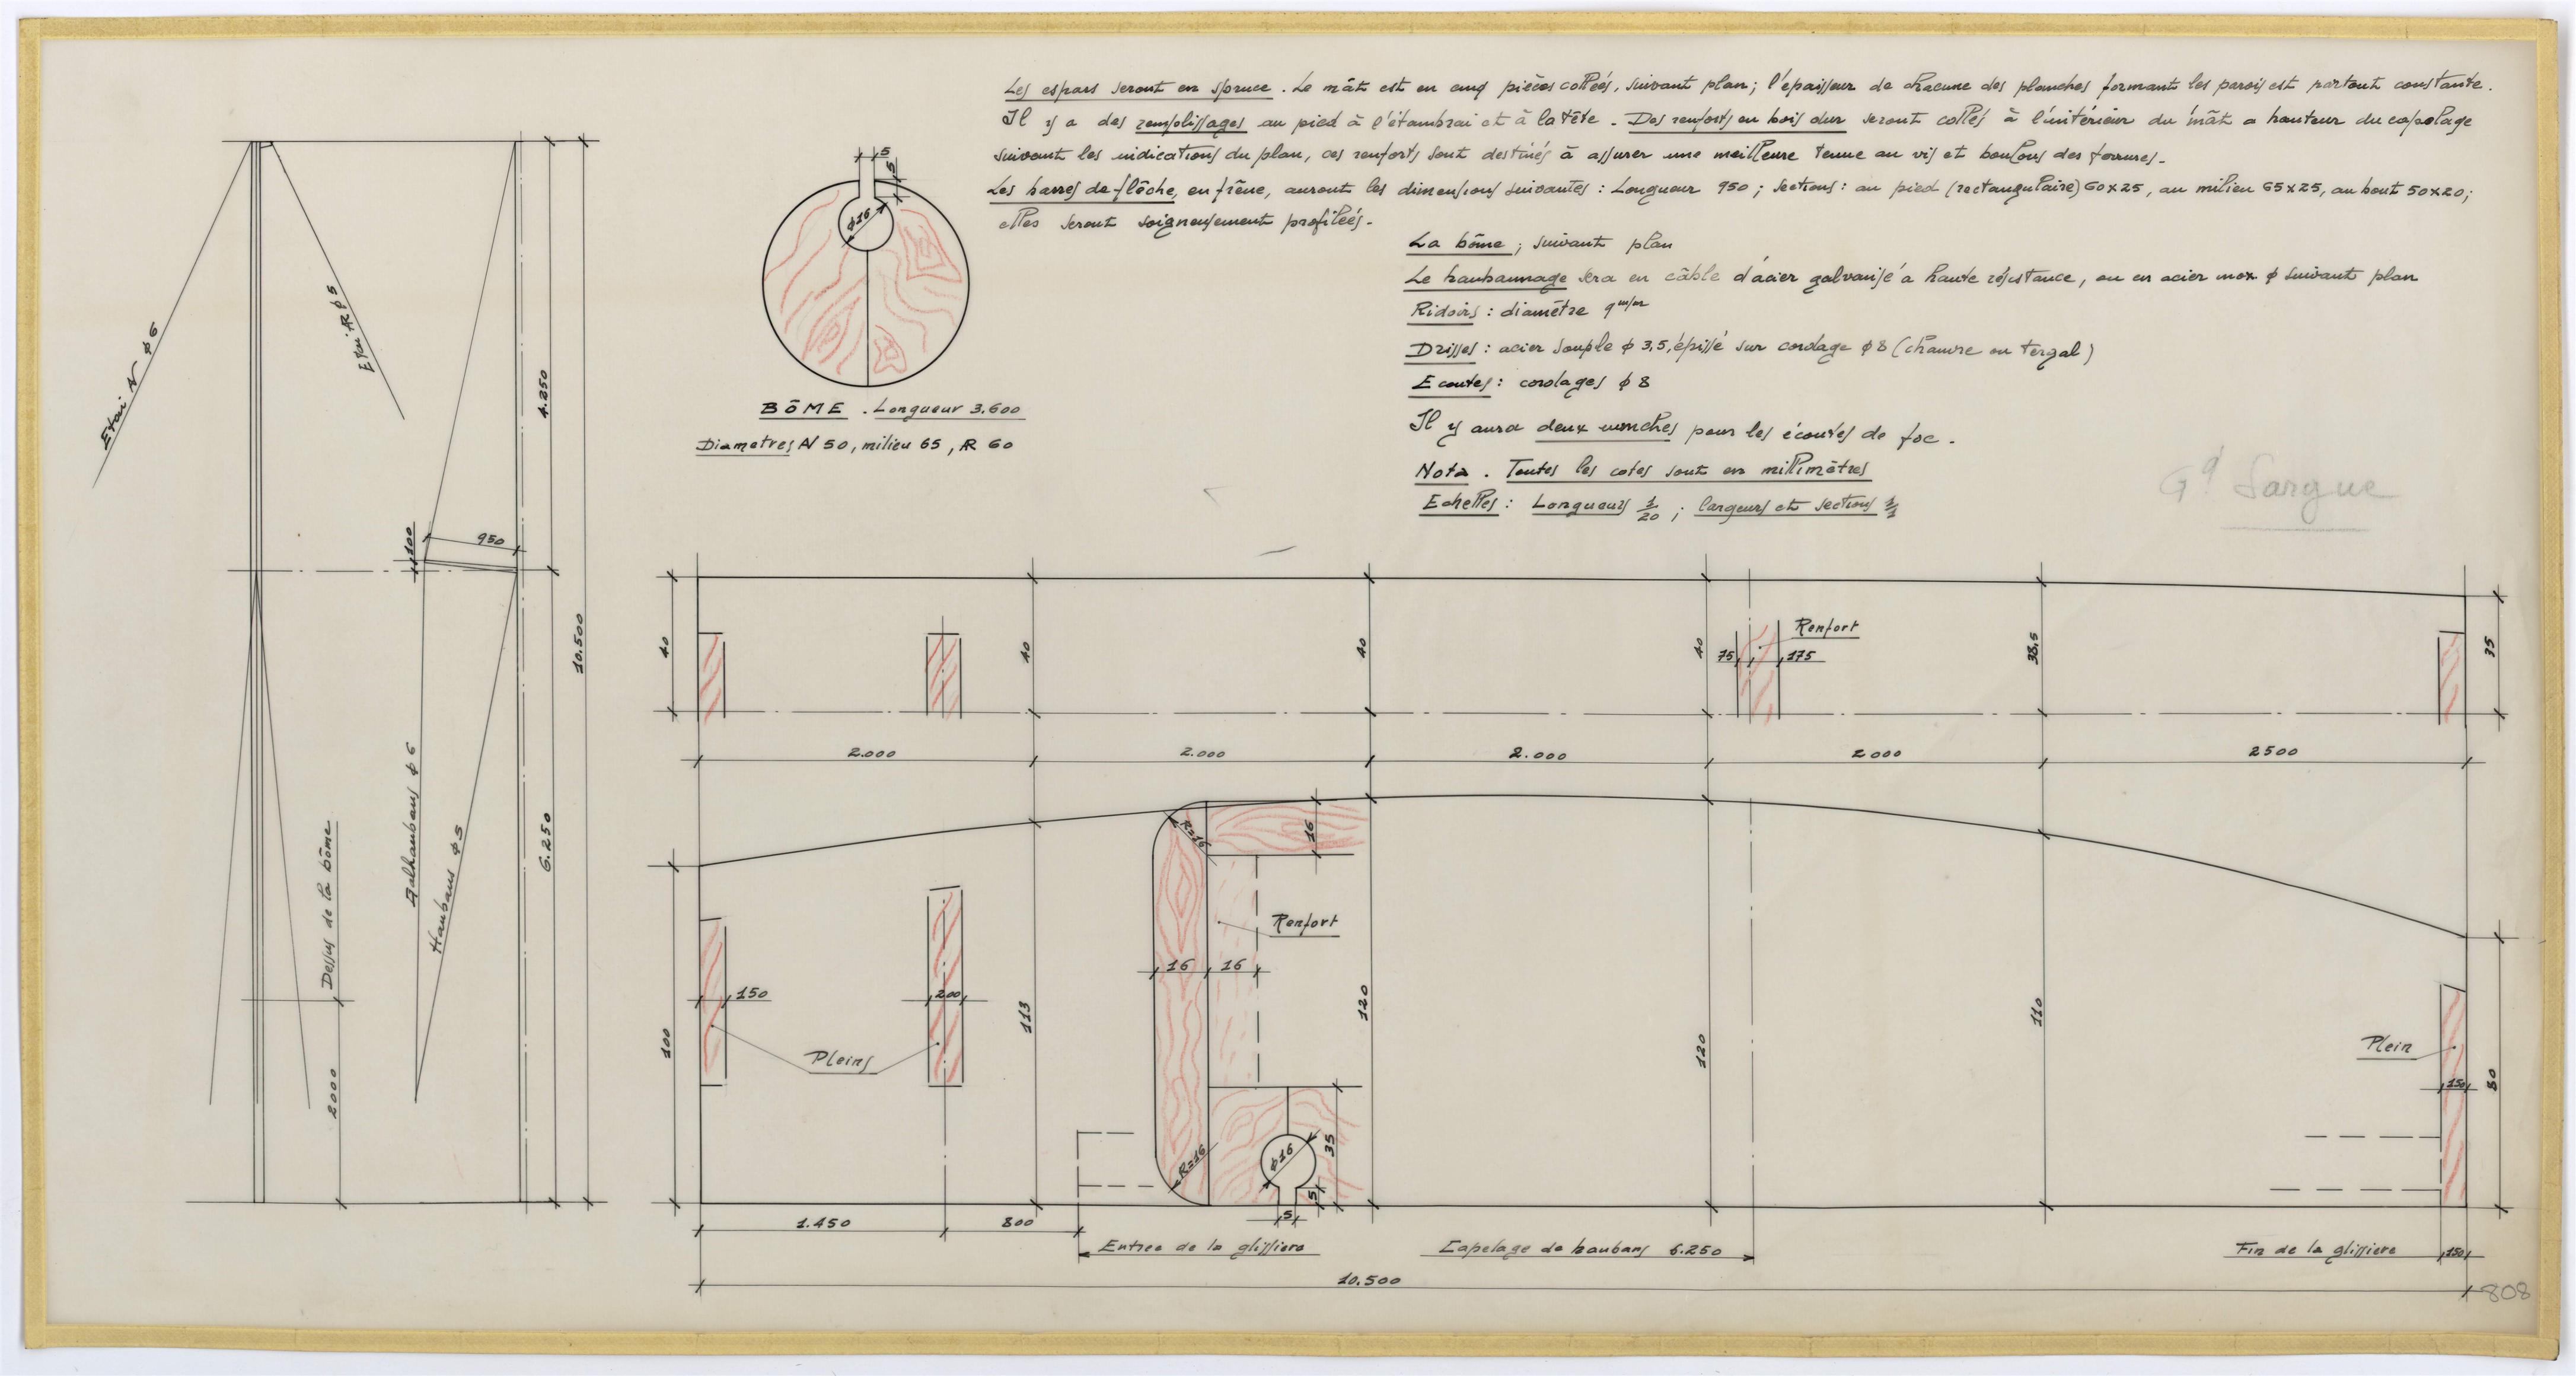 Les espars seront en spruce. Le mât est en cinq pièces collées, suivant plan; l'épaisseur de chacune des planches formant les parois est partout constante.
Il y a des remplissages au pied à l'étambrai et à la tête. Des renforts en bois dur seront collés à l'intérieur du mât a hauteur du capelage
suivant les indications du plan, ces renforts sont destinés à assurer une meilleure tenue au vis et boulons des ferrures.
Les barres de flèche, en frêne, auront les dimensions suivantes : Longueur 950 ; sections : au pied (rectangulaire) 60x25, au milieu 65x25, au bout 50x20;
elles seront soigneusement profilées.
La bôme ; suivant plan
Le haubannage sera en câble d'acier galvanisé a haute résistance, ou en acier inox ϕ suivant plan
Ridoirs : diamètre 9 m/m
Drisses : acier souple ϕ 3,5, épissé sur cordage ϕ 8 (chanvre ou tergal)
Ecoutes : cordages ϕ 8
Il y aura deux winches pour les écoutes de foc.
Nota. Toutes les cotes sont en millimètres
Echelles : Longueurs 1/20 ; largeurs et sections 1/1
Gd Sargue
5
5
ϕ16
BÔME. Longueur 3.600
Diametres AV 50, milieu 65, AR 60
Etai AV ϕ 6
Etai AR ϕ 5
4.250
100
950
10.500
6.250
Galhaubans ϕ 6
Haubans ϕ 5
Dessus de la bôme
2000
40
40
40
40
75
Renfort
175
38,5
35
2.000
2.000
2.000
2000
2500
R=16
16
Renfort
16
16
150
200
100
113
120
120
110
80
Pleins
Plein
150
R=16
ϕ16
35
5
5
1.450
800
Entrée de la glissiere
Capelage de haubans 6.250
Fin de la glissiere
150
10.500
808